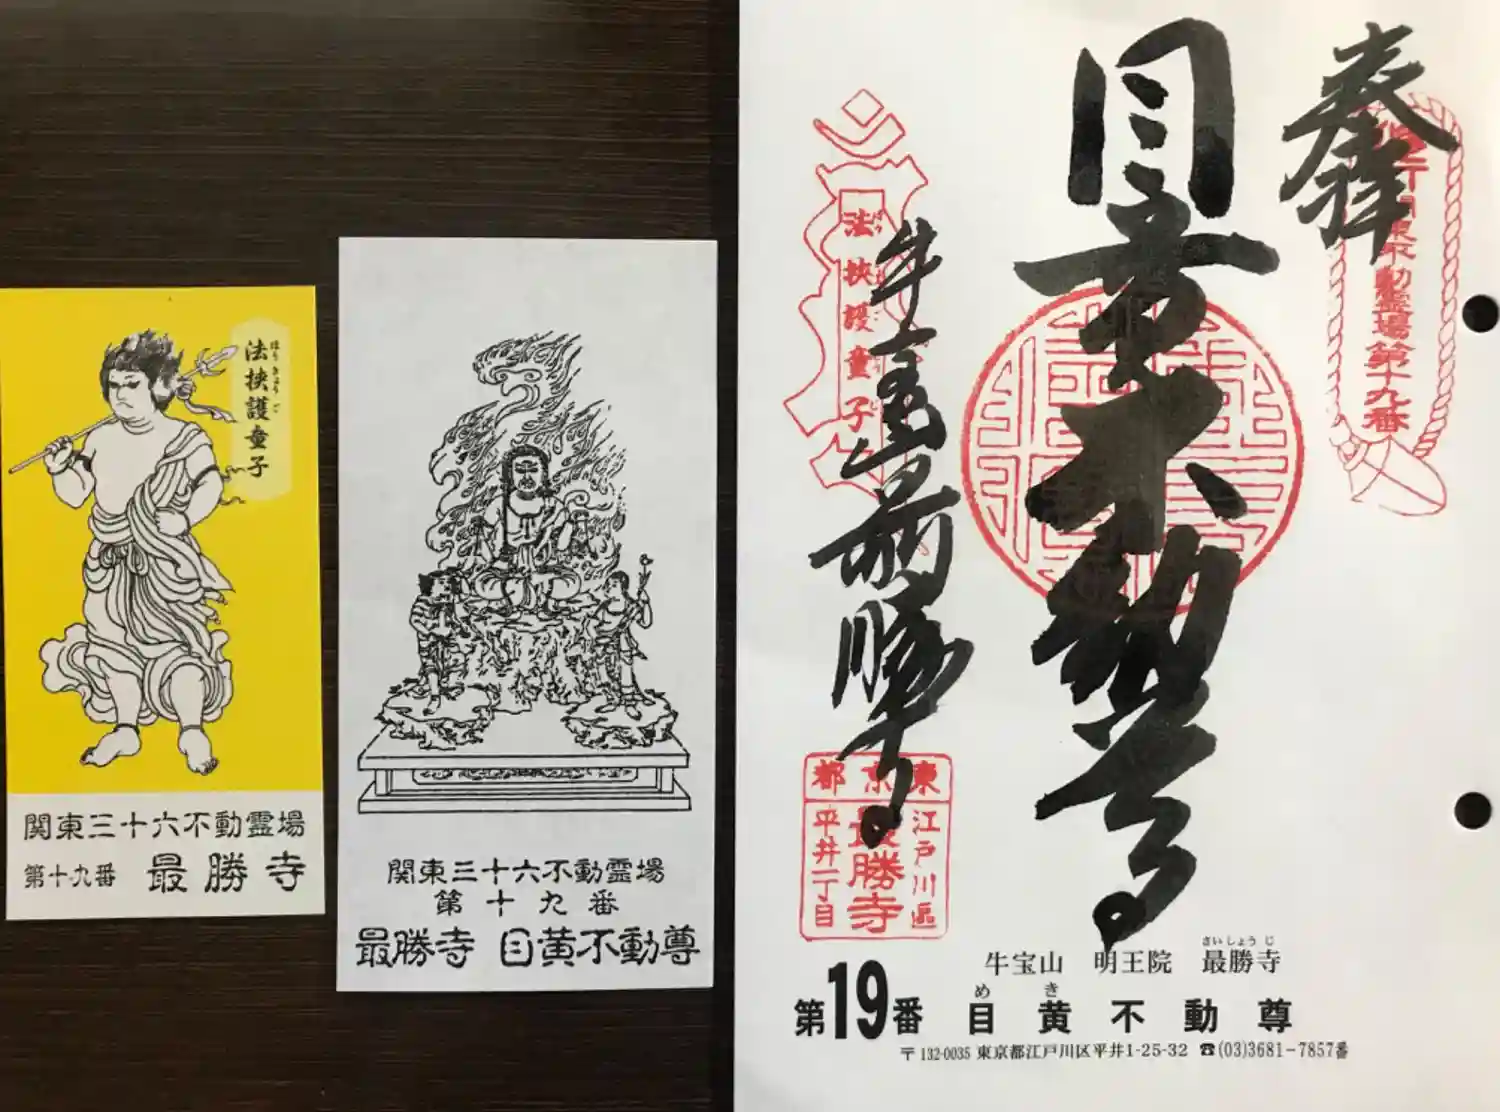 法挟護童子
ほうきょうご
関東三十六不動霊場
第十九番 最勝寺
関東三十六不動霊場
第十九番
最勝寺 目黄不動尊
奉拝
関東不動霊場第十九番
目黄不動尊
法挟護童子
牛宝山最勝寺
東京都
江戸川區
最勝寺
平井一丁目
さいしょうじ
牛宝山 明王院 最勝寺
めき
第19番 目黄不動尊
〒132-0035 東京都江戸川区平井1-25-32 ☎(03)3681-7857番